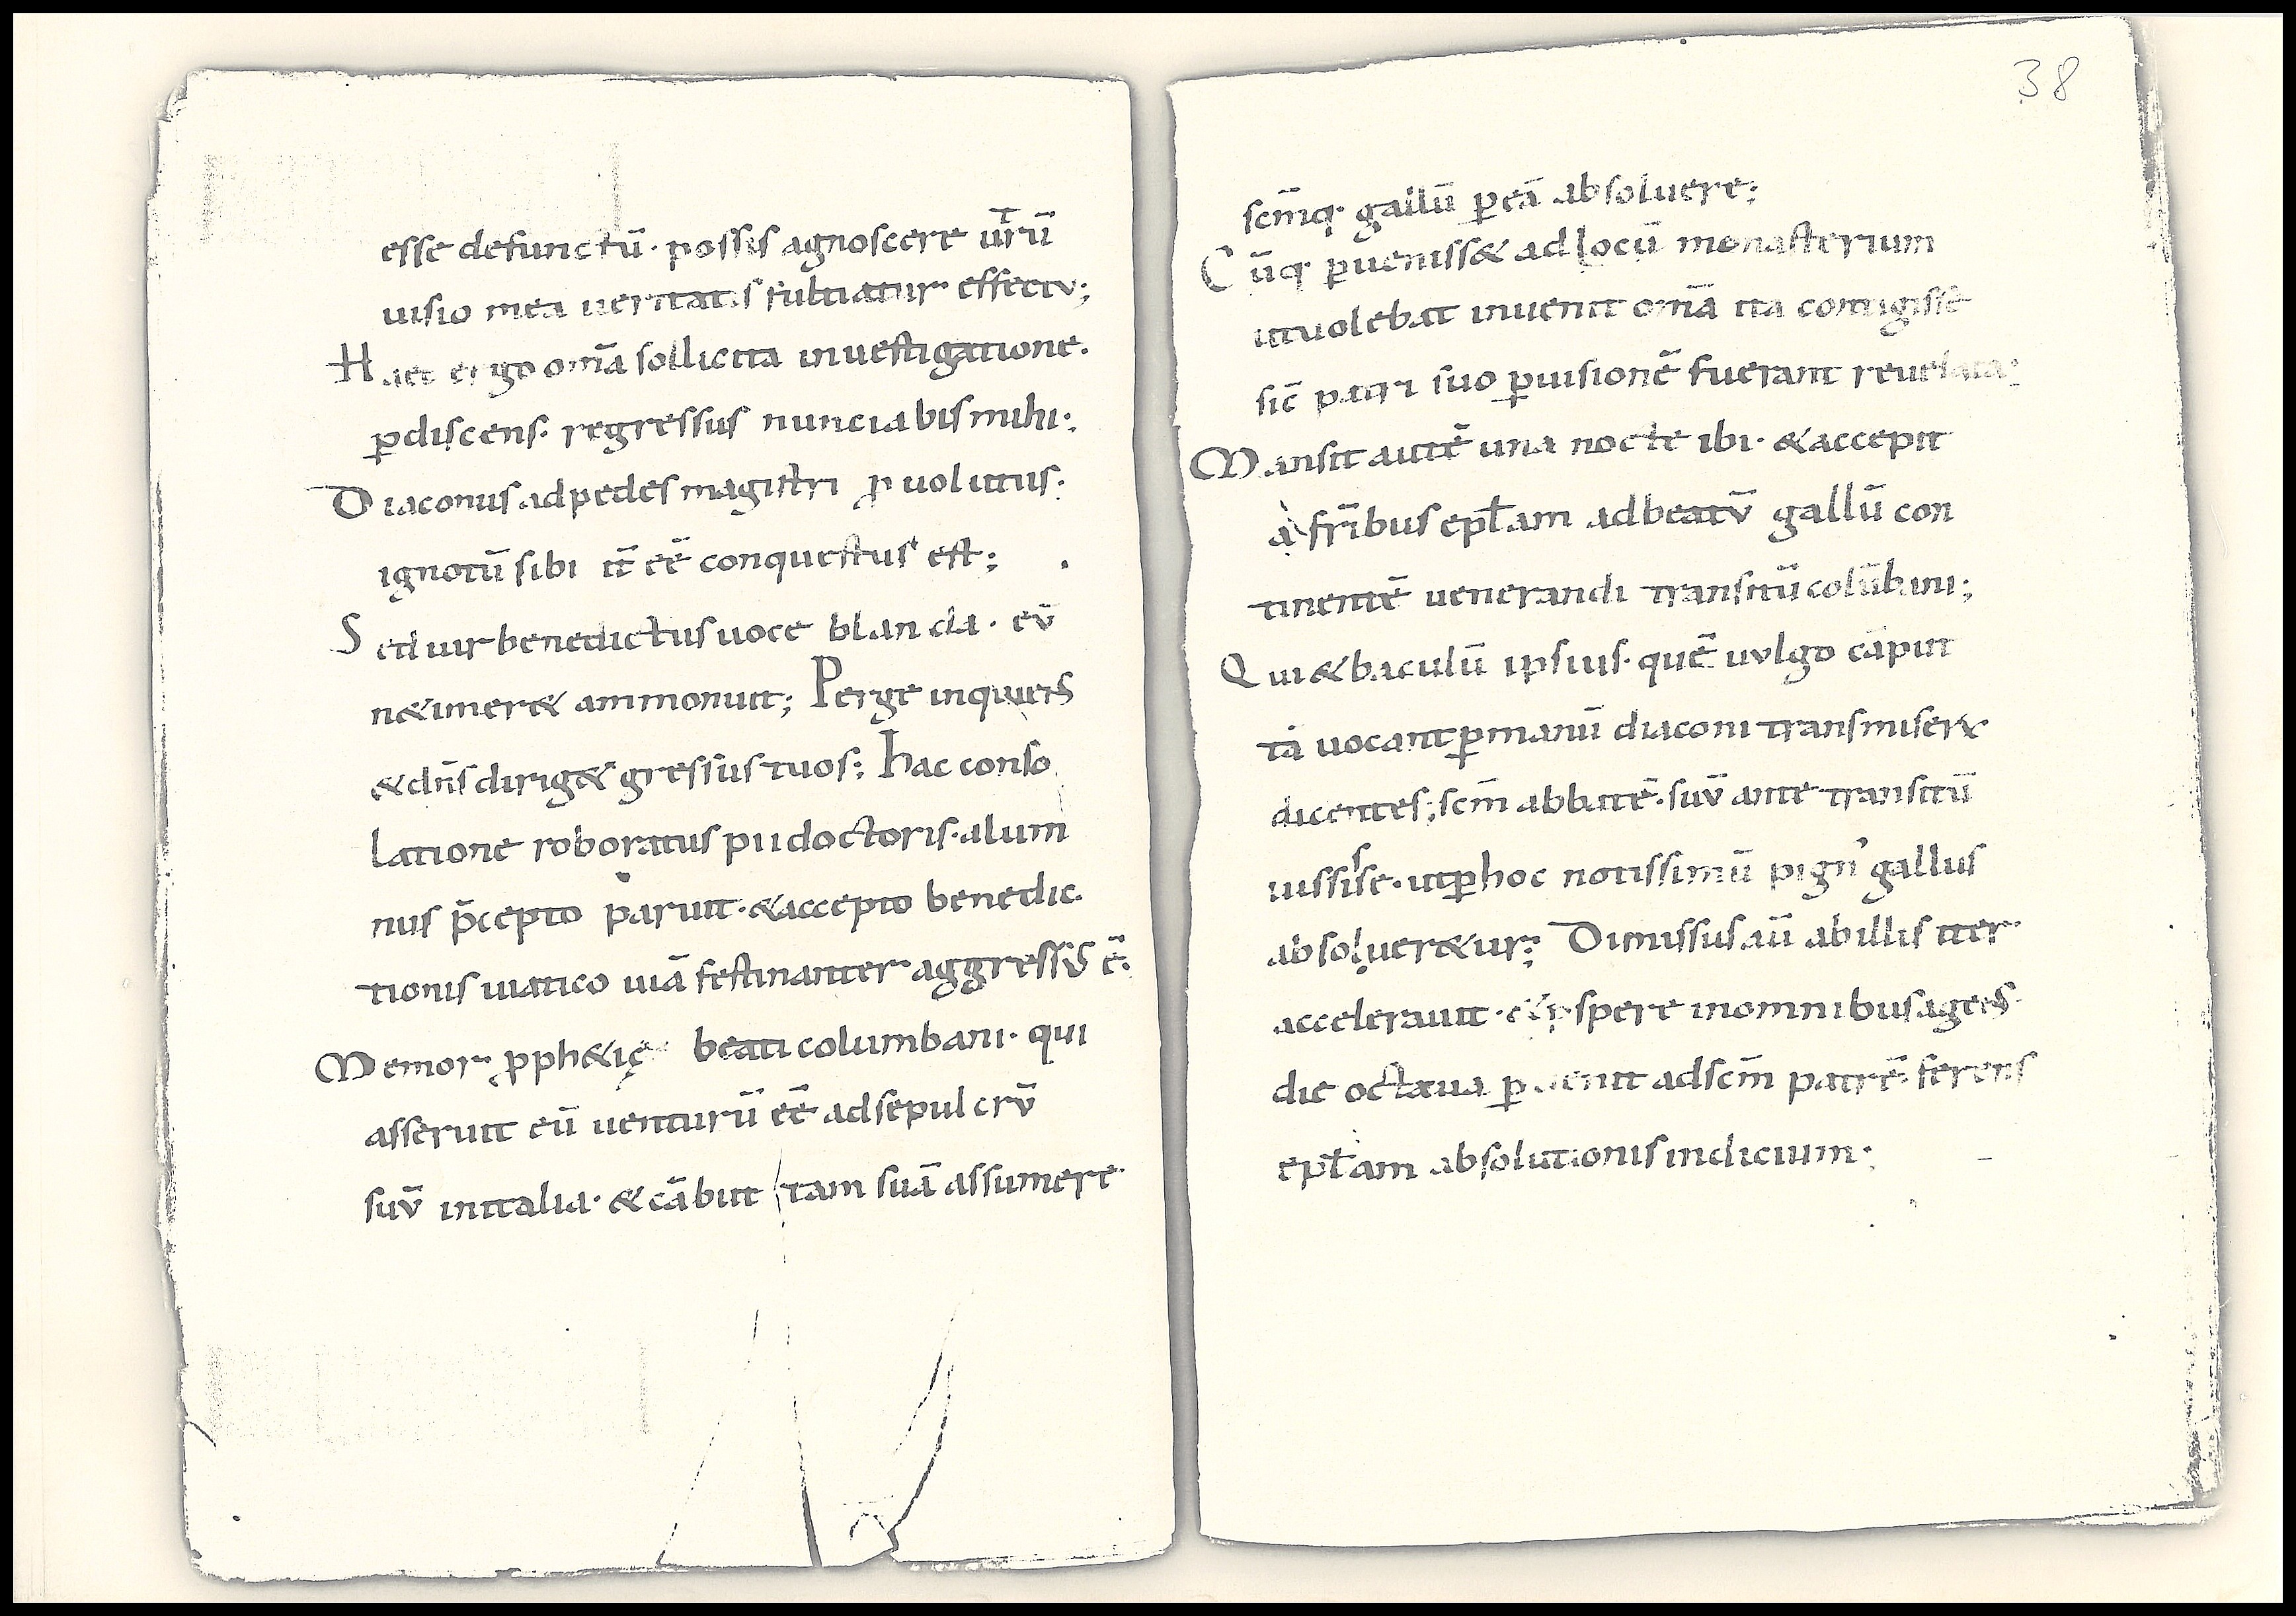 esse defunctū· possis agnoscere utrū
uisio mea ueritatis fulciatur effectv;
Haec ergo omā sollicita inuestigatione·
ꝑdiscens· regressus nunciabis mihi;
Diaconus ad pedes magistri ꝓuolutus·
ignotū sibi it̄ eē conquestus est;
Sed uir benedictus uoce blanda· ev̄
n& timer& ammonuit; Perge inquiens
& dn̄s dirig& gressus tuos; hac conso
latione roboratus pii doctoris· alum
nus p̄cepto paruit· & accepto benedic
tionis uiatico uiā festinanter aggressus ē·
Memor ꝓph&ię beati columbani· qui
asseruit eū uenturū eē ad sepulcrv̄
suv̄ in italia· & cābuttam suā assumere
38
scm̄q· gallū ꝑ eā absoluere;
Cūq· ꝑueniss& ad locū monasterium
ut uolebat inuenit omā ita contigisse
sic̄ patri suo ꝑ uisionē fuerant reuelata;
Mansit autē una nocte ibi· & accepit
a fr̄ibus epl̄am ad beatv̄ gallū con
tinentē uenerandi transitū colūbani;
Qui & baculū ipsius· quē uvlgo cāput
tā uocant ꝑ manū diaconi transmiser̄
dicentes; scm̄ abbatē· suv̄ ante transitū
iussisse· ut ꝑ hoc notissimū pign' gallus
absoluer&ur; Dimissus aū ab illis iter
accelerauit· & ꝓspere in omnibus agens
die octaua ꝑuenit ad scm̄ patrē· ferens
epl̄am absolutionis indicium;